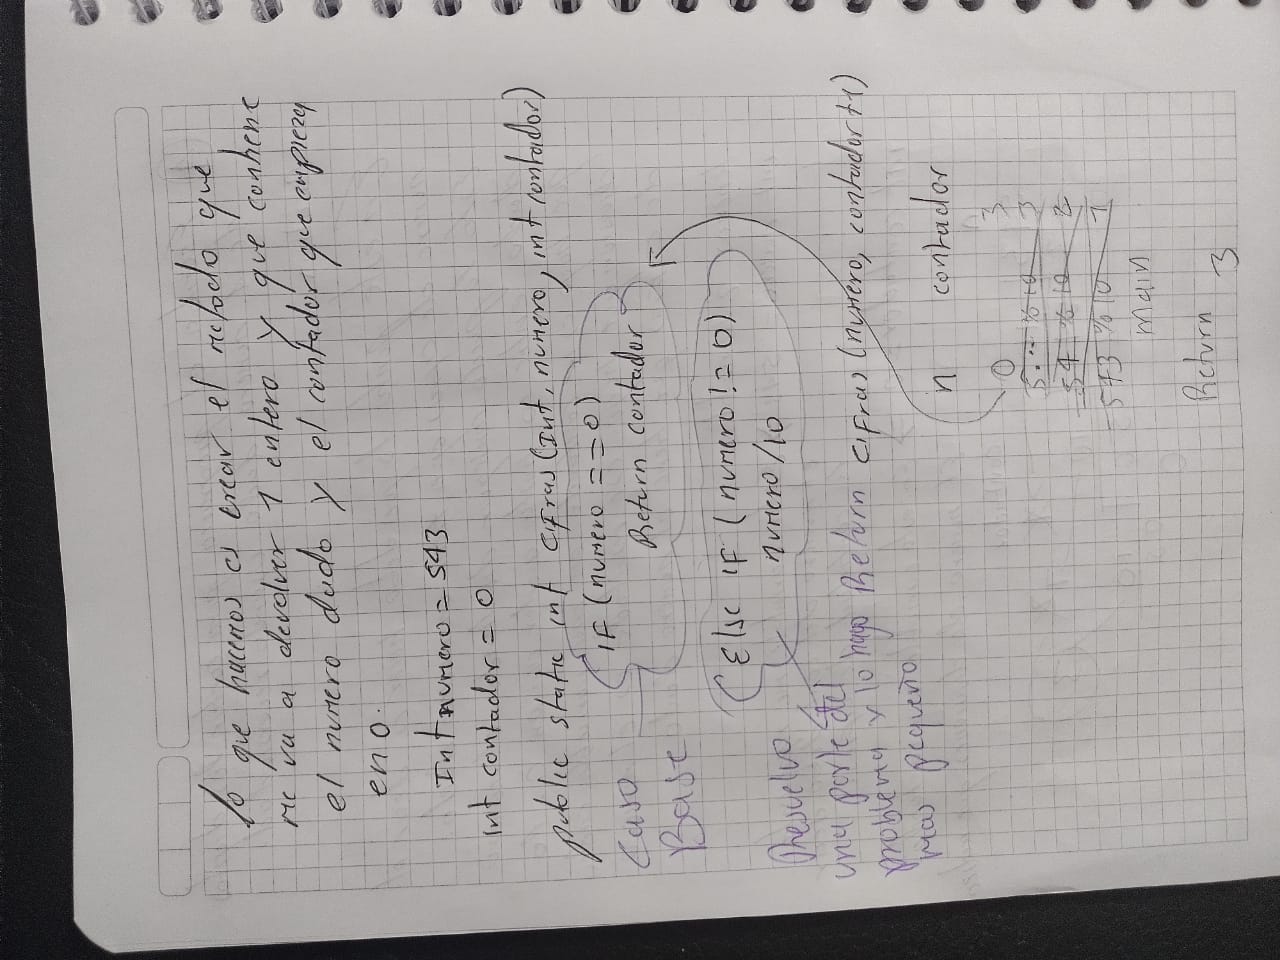 lo que hacemos es crear el metodo que
me va a devolver 1 entero y que contiene
el numero dado y el contador que empieza
en 0.
Int numero = 543
int contador = 0
public static int cifras (Int, numero, int contador)
Caso
Base
IF (numero == 0)
Return contador
Else IF (numero != 0)
numero /10
Resuelvo
una parte del
problema y lo hago
mas pequeño
Return cifras (numero, contador +1)
n contador
0 3
5 % 10 3
54 % 10 2
543 % 10 1
main
Return 3